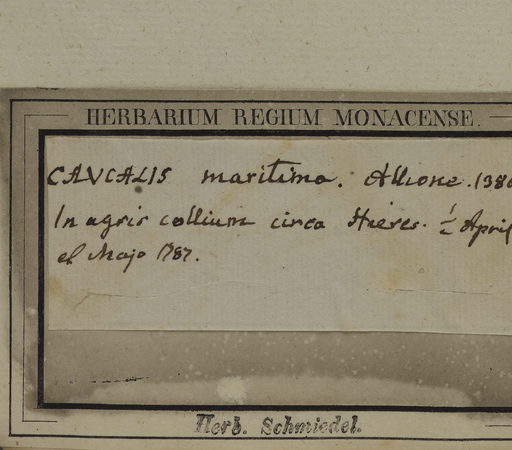 HERBARIUM REGIUM MONACENSE.
CAUCALIS maritima. Allione. 1386
In agris collium circa Hieres. ½ April
et Majo 1787.
Herb. Schmiedel.